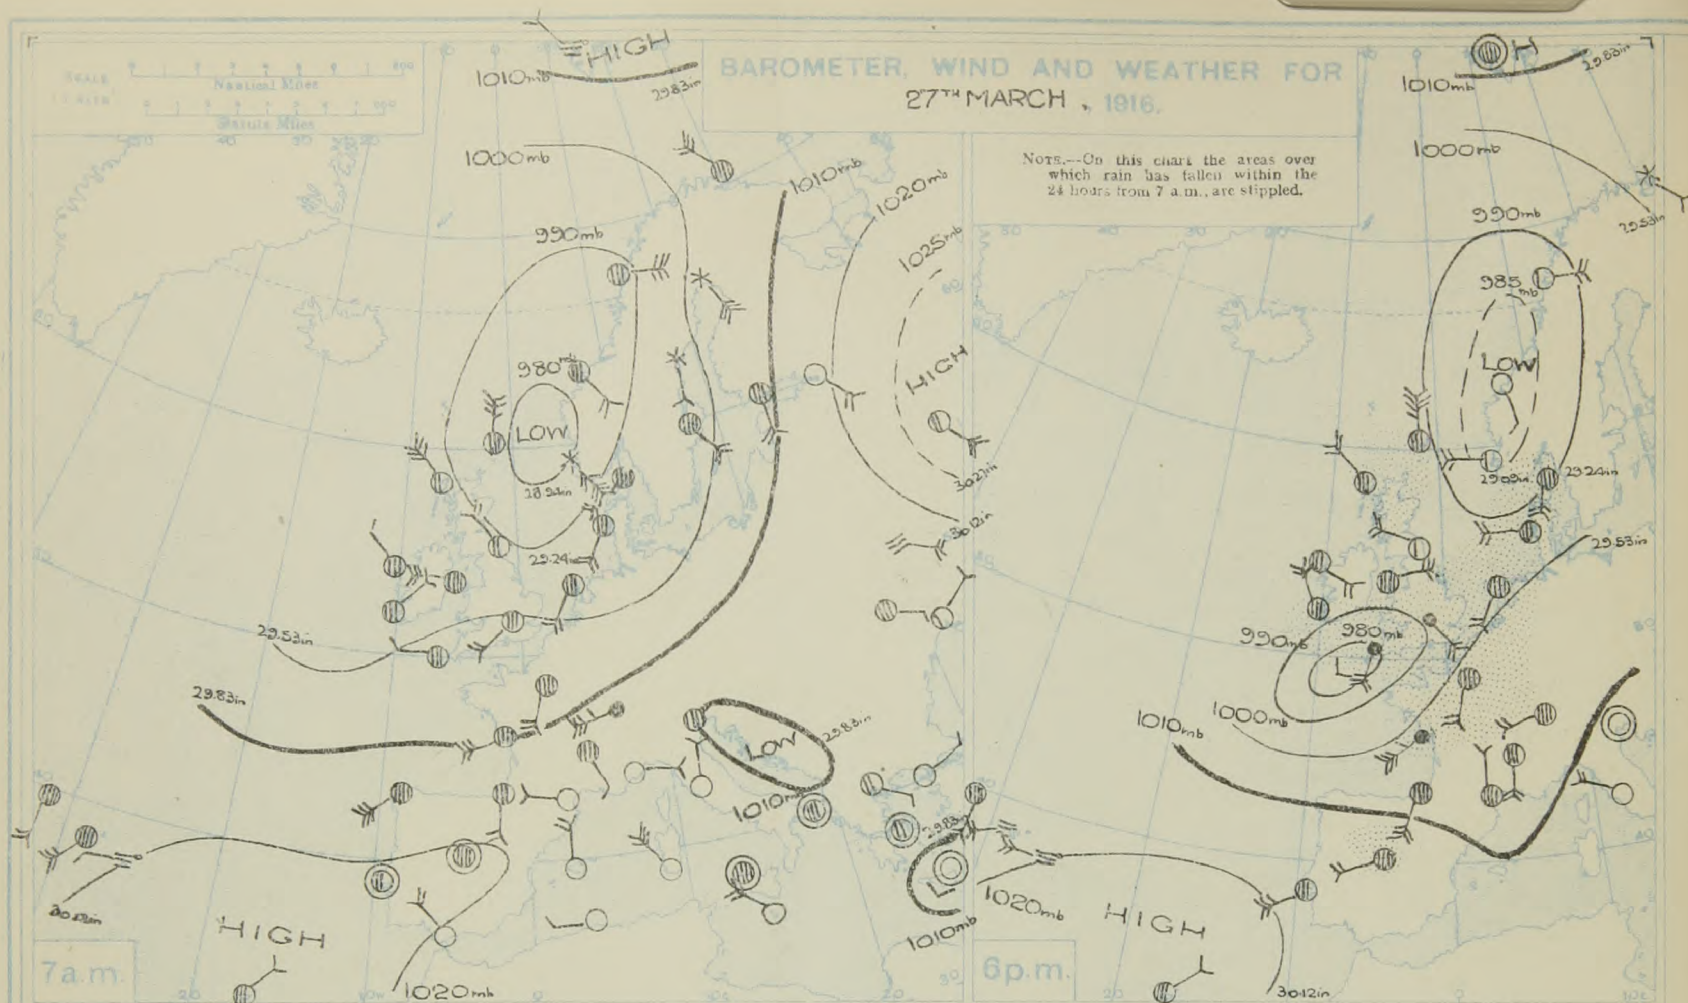 BAROMETER, WIND AND WEATHER FOR
27TH MARCH, 1916.
NOTE.—On this chart the areas over
which rain has fallen within the
24 hours from 7 a.m., are stippled.
Nautical Miles
Statute Miles
HIGH
1010mb
29.83in
1000mb
1010mb
1020mb
990mb
1025mb
980mb
HIGH
LOW
30.12in
29.24in
29.53in
29.83in
LOW
29.83in
1010mb
29.83in
L
1010mb
HIGH
1020mb
7a.m.
H
1010mb
29.83in
1000mb
29.53in
990mb
985mb
LOW
29.09in
29.24in
29.53in
990mb
980mb
L
1010mb
1000mb
1020mb
HIGH
30.12in
6p.m.